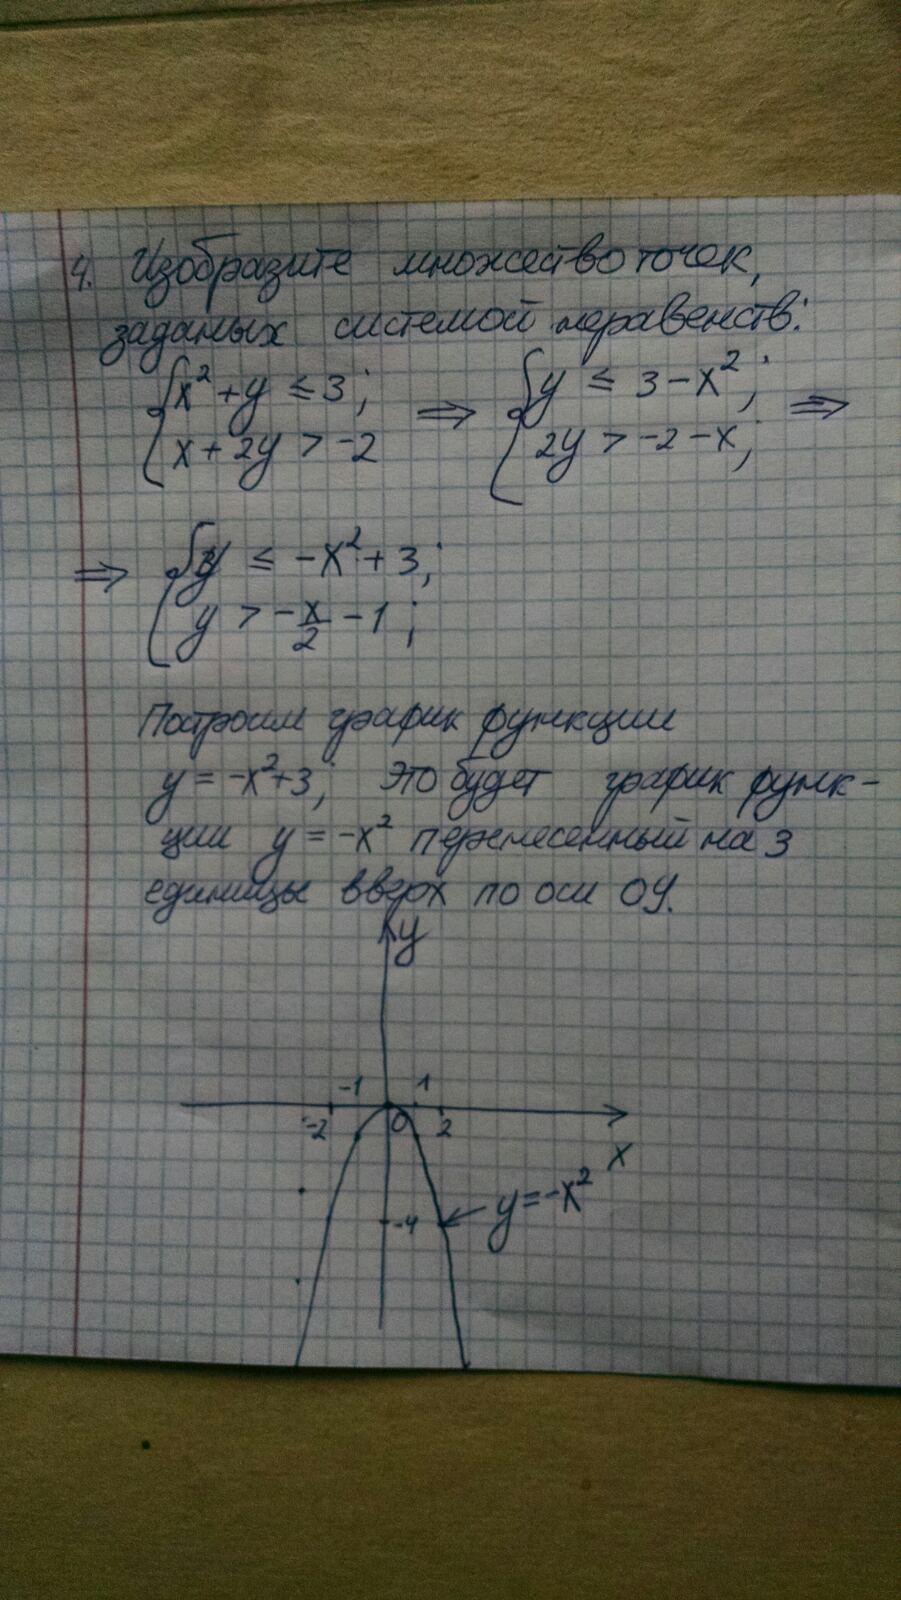 4. Изобразите множество точек,
заданых системой неравенств:
{x² + y ≤ 3; ⇒ {y ≤ 3 - x²; ⇒
{x + 2y > -2 {2y > -2 - x;
⇒ {y ≤ -x² + 3;
{y > -x/2 - 1;
Построим график функции
y = -x²+3; Это будет график функ-
ции y = -x² перенесенный на 3
единицы вверх по оси OY.
y
-1 1
-2 0 2
x
-4 y = -x²